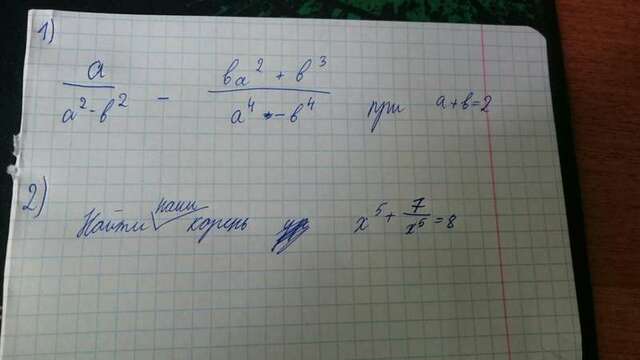 1)
a/(a² - в²) - (вa² + в³)/(a⁴ - в⁴) при a+в=2
2)
Найти наим корень x⁵ + 7/x⁵ = 8